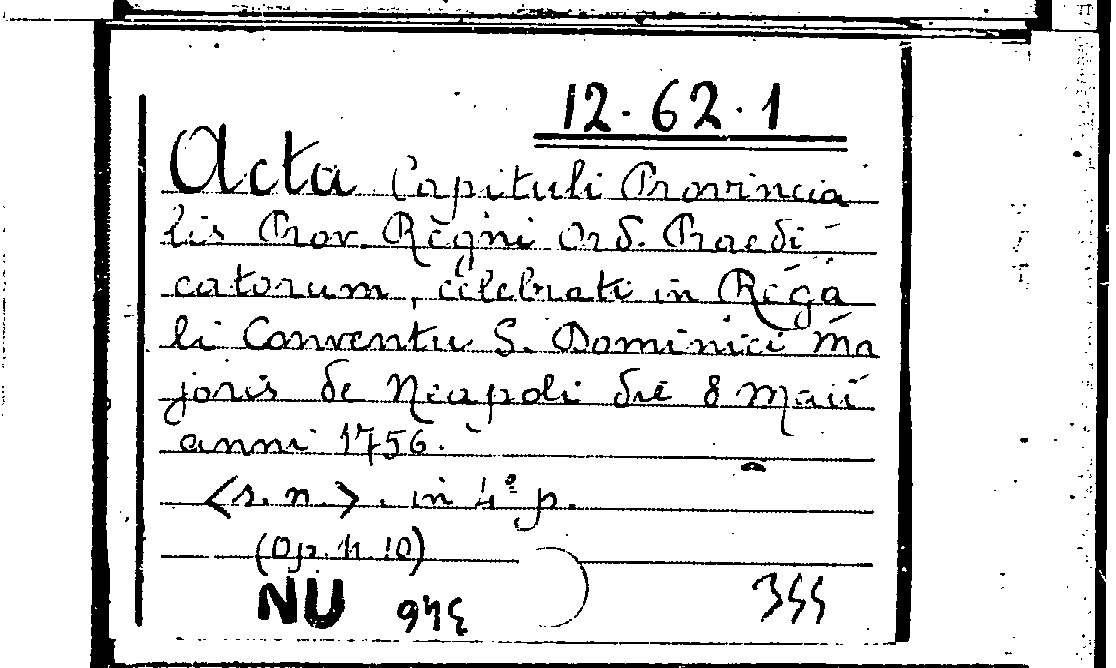 12.62.1
Acta Capituli Provincia
lis Prov. Regni Ord. Praedi
catorum, celebrati in Rega
li Conventu S. Dominici Ma
joris de Neapoli die 8 Maii
anni 1756.
<s.n.>. in 4º p.
(Op. n. 10)
NU